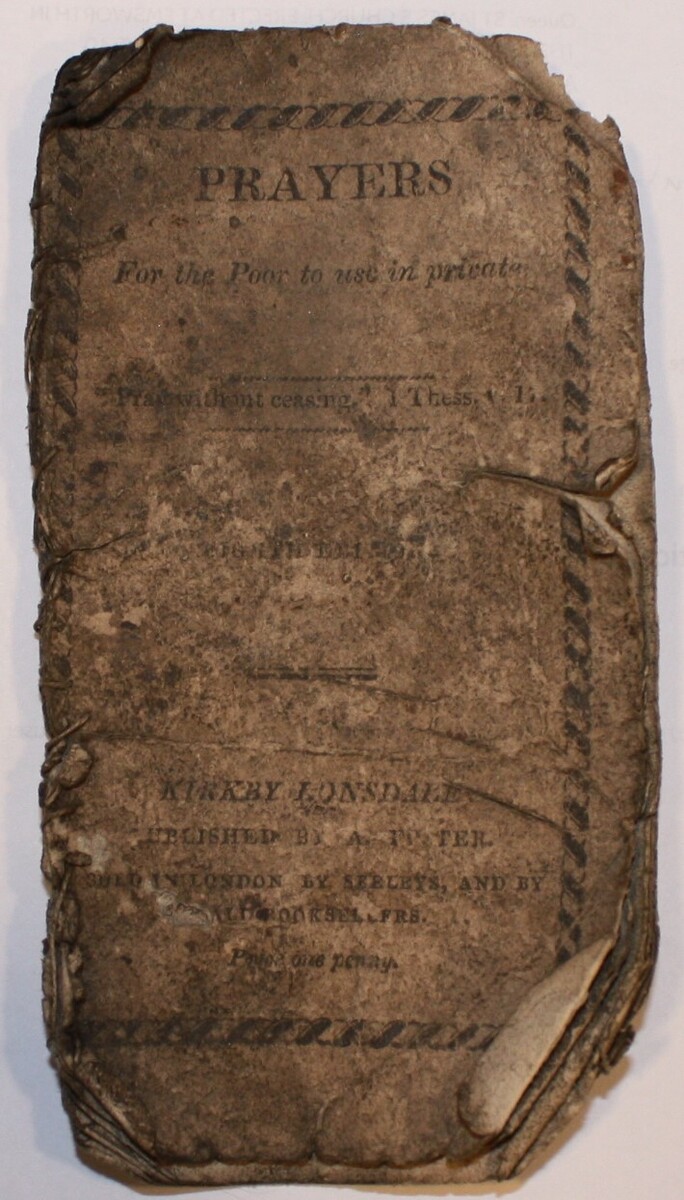 PRAYERS
For the Poor to use in private
"Pray without ceasing." 1 Thess. v.
KIRKBY LONSDALE
PUBLISHED BY A. FOSTER.
SOLD IN LONDON BY SEELEYS, AND BY
ALL BOOKSELLERS.
Price one penny.